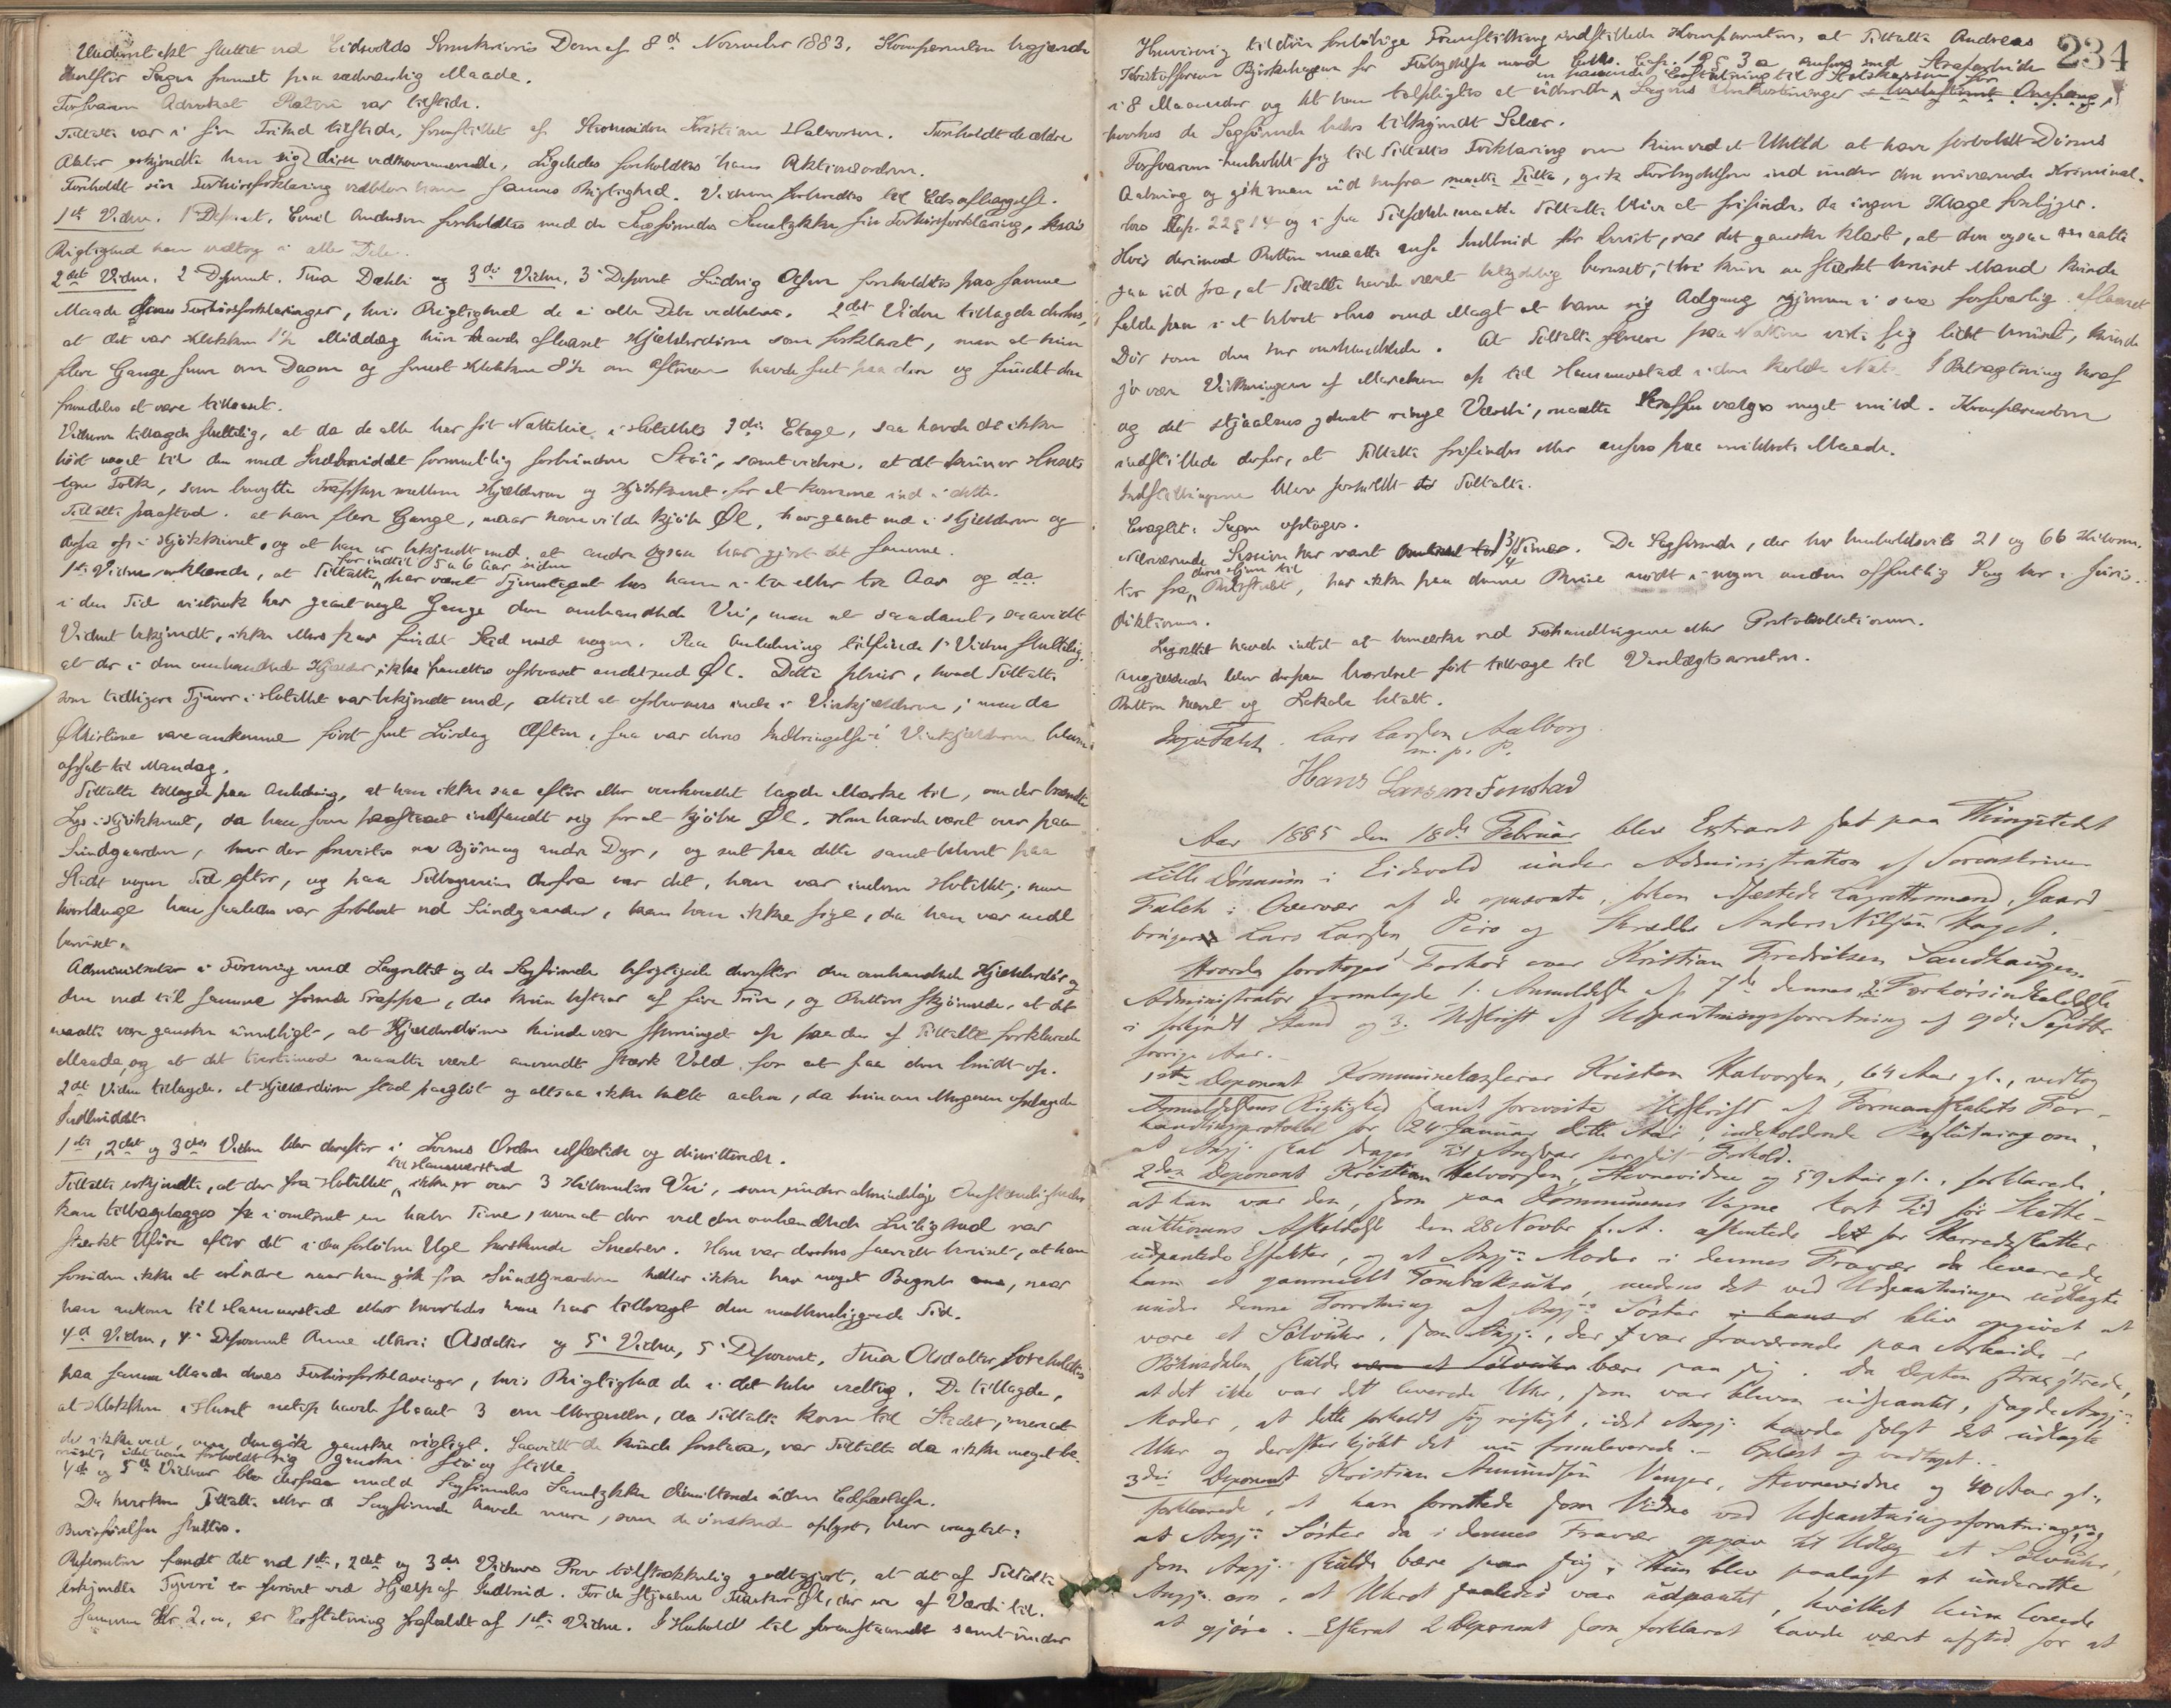 Undertekst sluttet ved Eidsvolds Sorenskriveris Dom af 8de November 1883. Komparenten begjærede
derefter Sagen fremmet paa sædvanlig Maade.
Forsvareren Advokat Platou var tilstede.
Tiltalte var i fri Tilstand tilstede, fremstillet af Stevnevidne Kristian Halvorsen. Foreholdt de ældre
Akter erkjendte han sig disse vedkommende. Ligeledes foreholdtes hans Aktionsordren.
Foreholdt sin Forhørsforklaring vedblev han sammes Rigtighed. Vidner forberedtes til Edsaflæggelse.
1ste Vidne. 1ste Deponent. Emil Andersen foreholdtes med de Sagførendes Samtykke sin Forhørsforklaring, hvis
Rigtighed han vedtog i alle Dele.
2det Vidne. 2 Deponent. Tina Dæhli og 3die Vidne, 3 Deponent Ludvig Olsen foreholdtes paa samme
Maade deres Forhørsforklaringer, hvis Rigtighed de i alle Dele vedbleve. 2det Vidne tillagde derhos,
at det var Klokken 1½ Middag hun havde aflaaset Kjælderdøren som forklaret, men at hun
flere Gange senere om Dagen og senest Klokken 8½ om Aftenen havde seet paa den og fundet den
fremdeles at være tillaaset.
Vidnerne tillagde sluttelig, at da de alle har sit Natteleie i Hotellets 3die Etage, saa havde de ikke
hørt noget til den med Indbruddet formentlig forbundne Støi, samt videre, at det kun er Husets
egne Folk, som benytte Trappen mellem Kjælderen og Kjøkkenet for at komme ind i dette.
Tiltalte paastod, at han flere Gange, naar han vilde kjøbe Øl, har gaaet ned i Kjælderen og
derfra op i Kjøkkenet, og at han er bekjendt med, at andre ogsaa har gjort det samme.
for indtil 5 a 6 Aar siden
1ste Vidne erklærede, at Tiltalte har været Tjenestegut hos ham i to eller tre Aar og da
i den Tid vistnok har gaaet nogle Gange den omhandlede Vei, men at saadant, saavidt
Vidnet bekjendt, ikke ellers har fundet Sted med nogen. Paa Anledning tilføiede 1ste Vidne sluttelig,
at der i den omhandlede Kjælder ikke fandtes opbevaret andet end Øl. Dette pleier, hvad Tiltalte
som tidligere Tjener i Hotellet var bekjendt med, altid at opbevares inde i Vinkjælderen; men da
Ølkisterne vare ankomne først sent Lørdag Aften, saa var deres Indbringelse i Vinkjælderen bleven
opsat til Mandag.
Tiltalte tillagde paa Anledning, at han ikke saa efter eller overhovedet lagde Mærke til, om der brændte
Lys i Kjøkkenet, da han som paastaaet indfandt sig for at kjøbe Øl. Han havde været over paa
Sundgaarden, hvor der forevistes en Bjørn og andre Dyr, og sat paa dette samt beluret paa
Stedt nogen Tid efter, og paa Tilbageveien derfra var det, han var indom Hotellet; men
hvorlænge han saaledes var forblevet ved Sundgaarden, kan han ikke sige, da han var endel
beruset.
Administrator i Forening med Lagrettet og de Sagførende besigtigede derefter den omhandlede Kjælderdør og
den ned til samme førende Trappe, der kun bestaar af fire Trin, og Retten skjønnede, at det
maatte være ganske umuligt, at Kjælderdøren kunde være sprunget op paa den af Tiltalte forklarede
Maade, og at det tvertimod maatte været anvendt stærk Vold for at faa den brudt op.
2det Vidne tillagde, at Kjælderdøren stod paaglöt og altsaa ikke helt aaben, da hun om Morgenen opdagede
Indbruddet.
1ste, 2det og 3die Vidne blev derefter i Lovens Orden edfæstede og dimitterede.
til Hammerstad
Tiltalte erkjendte, at der fra Hotellet ikke er over 3 Kilometers Vei, som under almindelige Omstændigheder
kan tilbagelægges i omtrent en halv Time, men at der ved den omhandlede Leilighed var
stærkt Uføre efter det i den forløbne Uge herskende Snedrev. Han var derhos saavidt beruset, at han
foruden ikke at erindre naar han gik fra Sundgaarden heller ikke har noget Begreb om, naar
han ankom til Hammerstad eller hvorledes han har tilbragt den mellemliggende Tid.
4de Vidne, 4 Deponent Anne Marie Olsdatter og 5te Vidne, 5 Deponent, Tina Olsdatter, foreholdtes
paa samme Maade deres Forhørsforklaringer, hvis Rigtighed de i det hele vedtog. De tillagde,
at Klokken i Huset netop havde slaaet 3 om Morgenen, da Tiltalte kom til Stedet, men at
de ikke ved, om den gik ganske rigtigt. Saavidt de kunde forstaa, var Tiltalte da ikke meget be-
ruset, idet han forholdt sig ganske stø og stille.
4de og 5te Vidner blev derpaa med de Sagførendes Samtykke dimitterede uden Edfæstelse.
Da hverken Tiltalte eller de Sagførende havde mere, som de ønskede oplyst, blev eragtet:
Bevisførelsen sluttes.
Aktor fandt det ved 1ste, 2det og 3die Vidnes Prov tilstrækkelig godtgjort, at det af Tiltalte
erkjendte Tyveri er forøvet ved Hjælp af Indbrud. For de stjaalne Flasker Øl, der er af Værdi til-
sammen Kr 2,00, er Erstatning frafaldt af 1ste Vidne. I Henhold til foranstaaende samt under
234
Henvisning til din forløbige Fremstilling indstillede Komparenten, at Tiltalte Andreas
Kristoffersen Bjørkehagen for Forbrydelse mod Lovens Cap. 19 § 3 a ansees med Strafarbeide
en passende Erstatning til Statskassen for
i 8 Maaneder og at han tilpligtes at udrede Sagens Omkostninger
hvorhos de Sagførende bedes tilkjendt Salær.
Forsvareren henholdt sig til Tiltaltes Forklaring om kun ved et Uheld at have forvoldt Dørens
Aabning og gik man ud herfra maatte Tiltalte, gik Forbrydelsen ind under den nuværende Kriminal-
lovs Cap. 22 § 14 og i saa Tilfælde maatte Tiltalte blive at frifinde, da ingen Klage foreligger.
Hvis derimod Retten maatte anse Indbrud for bevist, var det ganske klart, at den ogsaa maatte
gaa ud fra, at Tiltalte havde været betydelig beruset, thi kun en stærkt beruset Mand kunde
falde paa i et beboet Hus med Magt at bane sig Adgang gjennem i saa forsvarlig aflaaset
Dør som den her omhandlede. At Tiltalte senere paa Natten viste sig lidet beruset, kunde
jo være Virkningen af Marschen op til Hammerstad i den kolde Nat. I Betragtning heraf
og det stjaalnes yderst ringe Værdi, maatte Straffen vælges meget mild. Komparenten
indstillede derfor, at Tiltalte frifindes eller ansees paa mildeste Maade.
Indstillingerne blev foreholdt Tiltalte.
Eragtet: Sagen optages.
Nærværende Session har varet 1 3/4 Timer. De Sagførende, der har henholdsvis 21 og 66 Kilom.
deres Hjem til
ter fra Retsstedet, har ikke paa denne Reise mødt i nogen anden offentlig Sag her i Juris-
diktionen.
Lagrettet havde intet at bemærke ved Forhandlingerne eller Protokollationen.
Angjældende blev derpaa beordret ført tilbage til Varetægtsarresten.
Retten hævet og Lokale betalt.
Inge Falch. Lars Larsen Aalborg
m. p. P.
Hans Larsen Fonstad
Aar 1885 den 18de Februar blev Extraret sat paa Thingstedet
Lille Dønnum i Eidsvold under Administration af Sorenskriver
Falch i Overvær af de opnævnte, forhen edfæstede Lagrettesmænd, Gaard-
brugerne Lars Larsen Piro og Skrædder Anders Nilsen Haget.
Hvorda foretoges Forhør over Kristian Fredriksen Sandhaugen.
Administrator fremlagde 1. Anmeldelse af 7de dennes, 2. Forhørsindkaldelse
i forkyndt Stand og 3. Udskrift af Udpantningsforretning af 9de Septbr
forrige Aar.
1ste Deponent Kommunekasserer Kristen Halvorsen, 64 Aar gl., vedtog
Anmeldelsens Rigtighed samt foreviste Udskrift af Formandskabets For-
handlingsprotokol for 24 Januar dette Aar, indeholdende Beslutning om,
at Angj. skal drages til Ansvar for dit Forhold.
2den Deponent Kristian Halvorsen, Stevnevidne og 59 Aar gl., forklarede,
at han var den, som paa Kommunens Vegne kort Tid før Skatte-
auktionens Afholdelse den 28 Novbr f. A. afhentede det for Herredsskatter
udpantede Effekter, og at Angj.s Moder i dennes Fravær da leverede
ham et gammelt Tombaksuhr, medens det ved Udpantningen udlagte
under denne Forretning af Angj.s Søster blev opgivet at
være et Sølvuhr, som Angj., der var fraværende paa Arbeide i
Bøhnsdalen, skulde bære paa sig. Da Depten strax ytrede,
at det ikke var det leverede Uhr, som var bleven udpantet, sagde Angj.s
Moder, at dette forholdt sig rigtigt, idet Angj. havde solgt det udlagte
Uhr og derefter kjøbt det nu fremleverede. - Oplæst og vedtaget.
3die Deponent Kristian Amundsen Venger, Stevnevidne og 40 Aar gl.,
forklarede, at han forrettede som Vidne ved Udpantningsforretningen, og
at Angj.s Søster da i dennes Fravær opgav til Udlæg et Sølvuhr,
som Angj. skulde bære paa sig. Hun blev paalagt at underrette
Angj. om, at Uhret saaledes var udpantet, hvilket hun lovede
at gjøre. Efterat 2 Deponent som forklaret havde været afsted for at